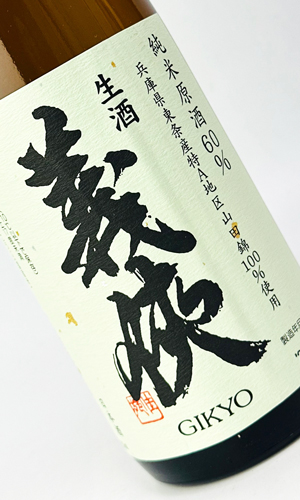 純米原酒60%
兵庫県東条産特A地区山田錦100%使用
生酒
義侠
GIKYO
製造年月